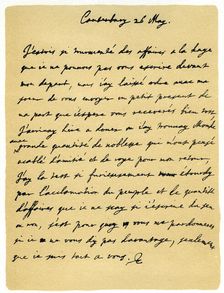 Canterbury 26 May.
J'estois si tourmenté des affaires a la haye
que je ne pouvois pas vous escrire devant
mon depart, mais j'ay laissé odre avec ma
soeur de vous envoyer un petit present de
ma part que j'espere vous recevrez bien tost
J'arrivay hier a dover ou j'ay trouvay Monk
avec grande quantité de noblesse qui m'ont pensé
acablé d'amitié et de joye pour mon retour,
J'ay la test si furieusement étourdy
par l'acclamation du peuple et le quantité
d'affaires que je ne scay si j'escrive du sen
ou non, s'est pour quoy vous me pardonneres
si je ne vous dy pas davantage, seulement
que je suis tout a vous. C